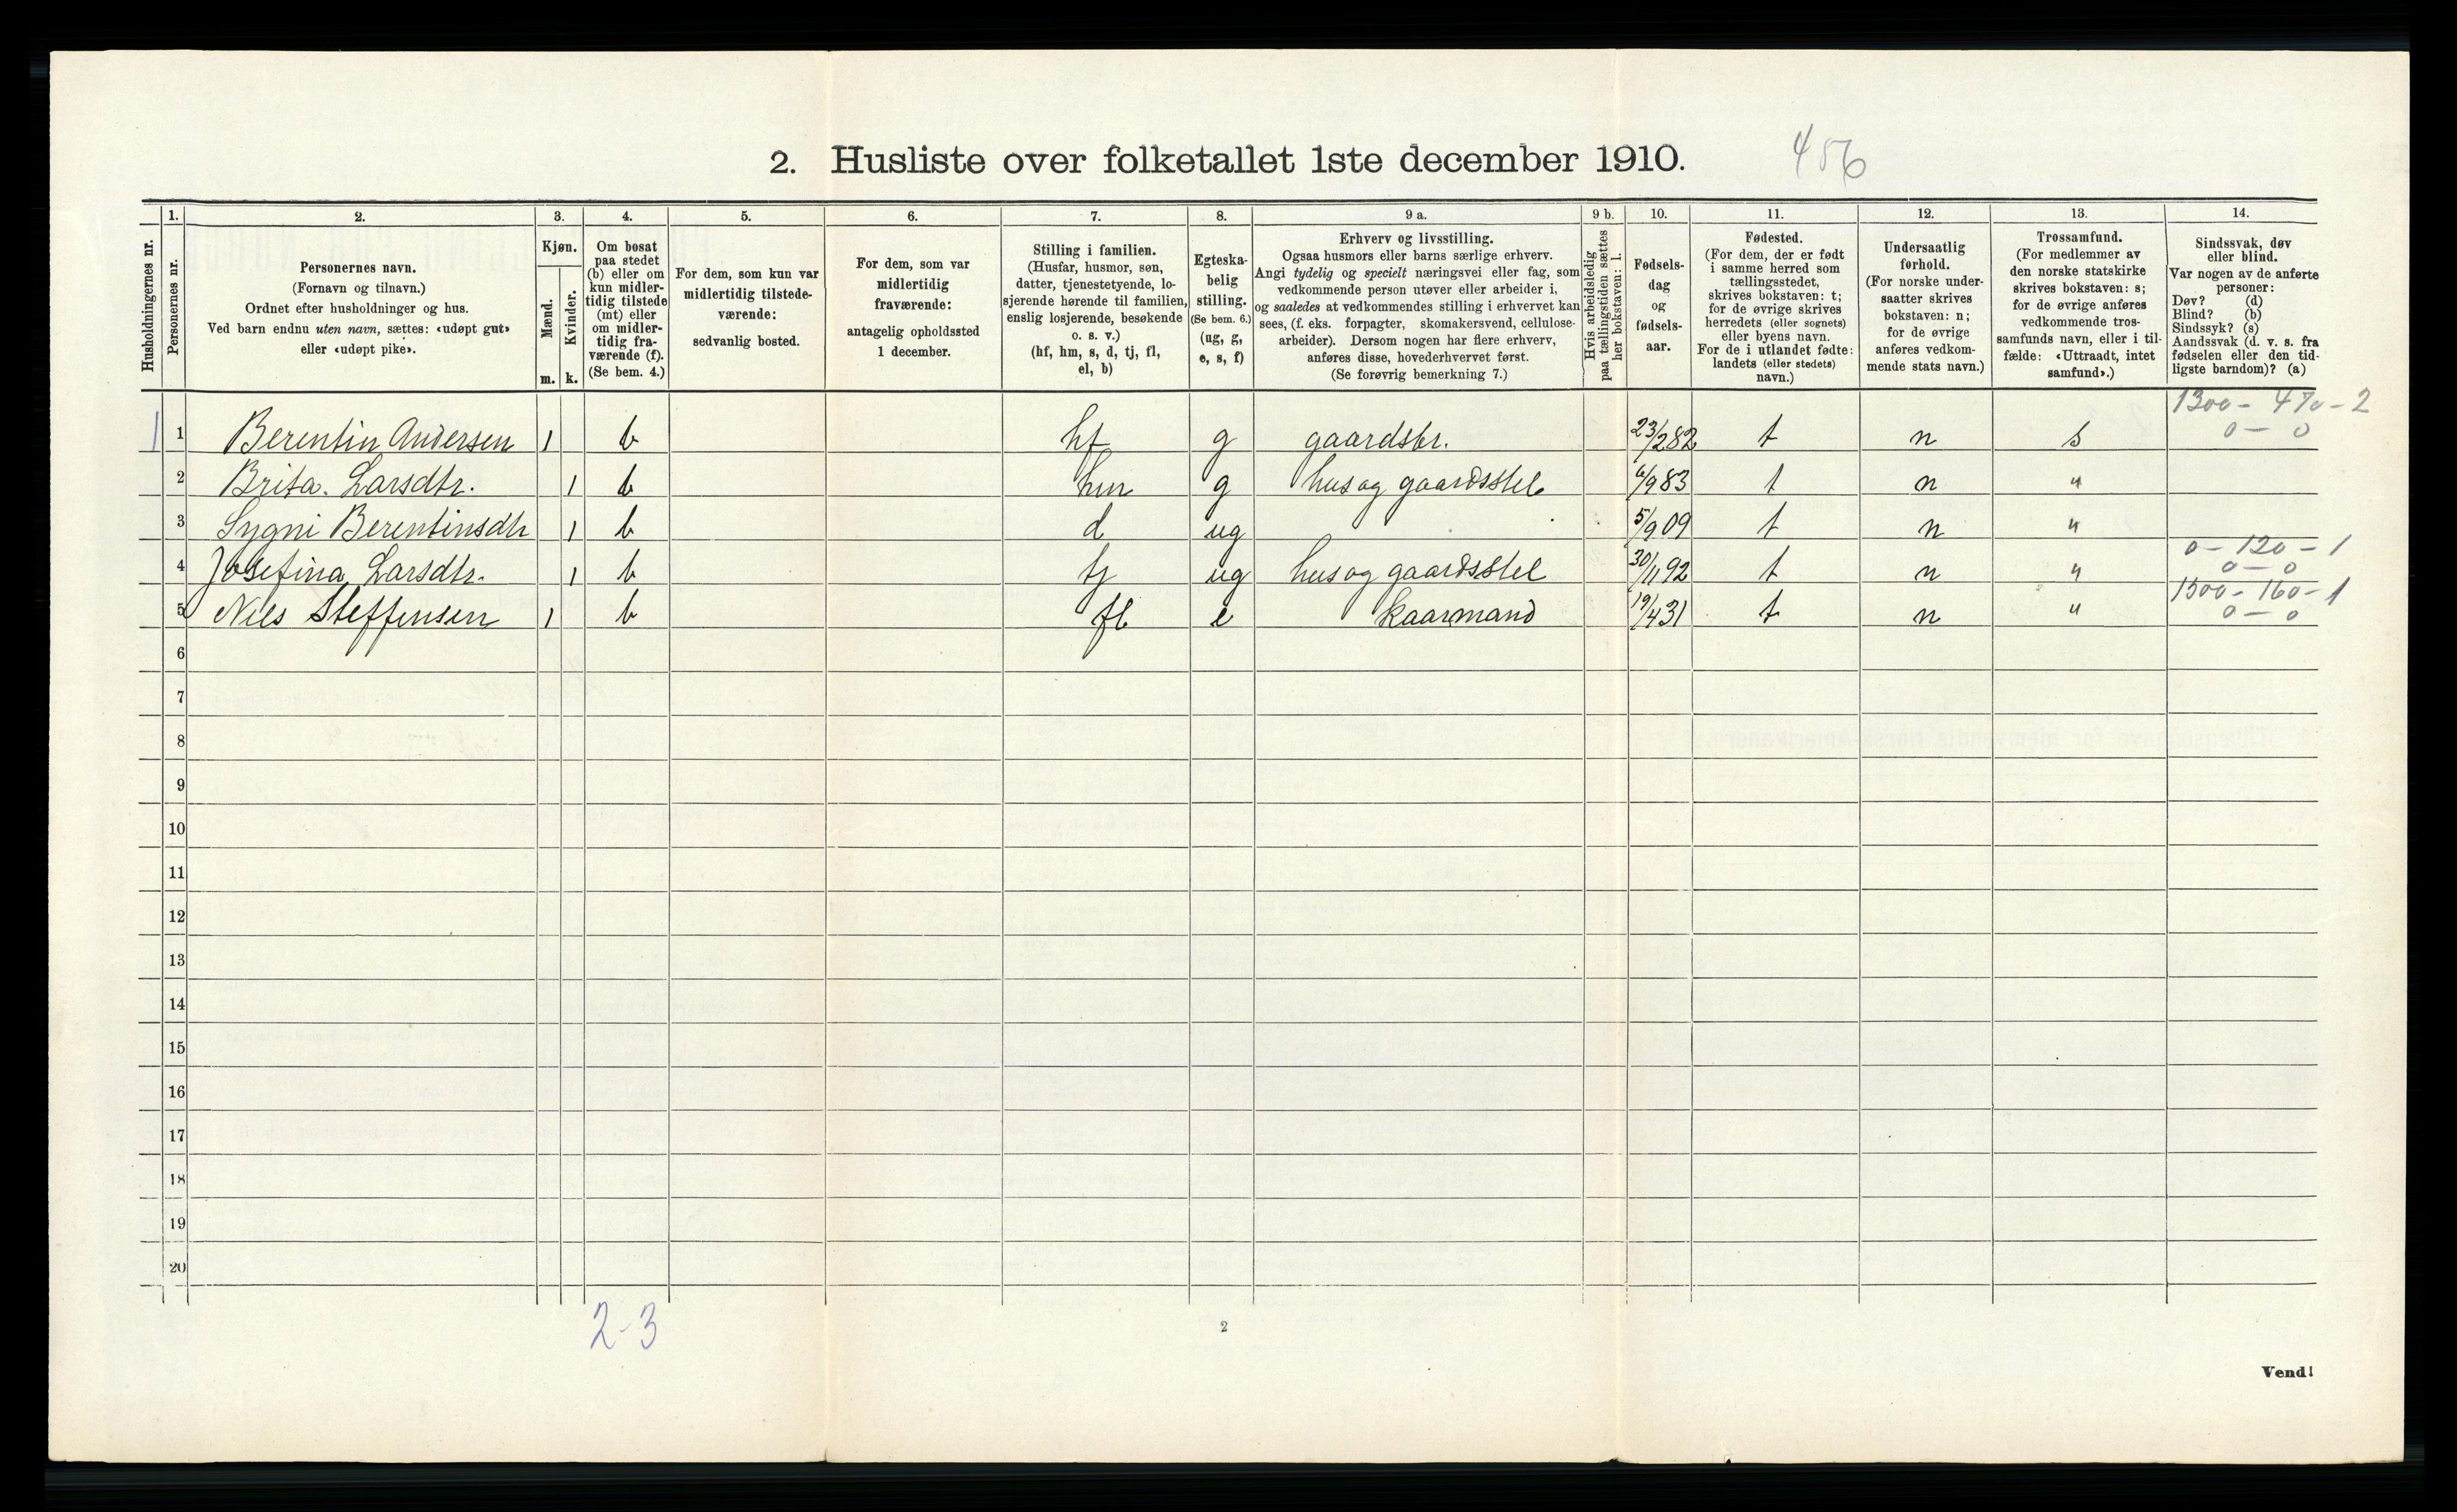 2. Husliste over folketallet 1ste december 1910. 456
Husholdningernes nr.
1. Personernes nr.
2. Personernes navn.
(Fornavn og tilnavn.)
Ordnet efter husholdninger og hus.
Ved barn endnu uten navn, sættes: «udøpt gut»
eller «udøpt pike».
3. Kjøn.
Mænd. m.
Kvinder. k.
4. Om bosat
paa stedet
(b) eller om
kun midler-
tidig tilstede
(mt) eller
om midler-
tidig fra-
værende (f).
(Se bem. 4.)
5. For dem, som kun var
midlertidig tilstede-
værende:
sedvanlig bosted.
6. For dem, som var
midlertidig
fraværende:
antagelig opholdssted
1 december.
7. Stilling i familien.
(Husfar, husmor, søn,
datter, tjenestetyende, lo-
sjerende hørende til familien,
enslig losjerende, besøkende
o. s. v.)
(hf, hm, s, d, tj, fl,
el, b)
8. Egteska-
belig
stilling.
(Se bem. 6.)
(ug, g,
e, s, f)
9 a. Erhverv og livsstilling.
Ogsaa husmors eller barns særlige erhverv.
Angi tydelig og specielt næringsvei eller fag, som
vedkommende person utøver eller arbeider i,
og saaledes at vedkommendes stilling i erhvervet kan
sees, (f. eks. forpagter, skomakersvend, cellulose-
arbeider). Dersom nogen har flere erhverv,
anføres disse, hovederhvervet først.
(Se forøvrig bemerkning 7.)
9 b. Hvis arbeidsledig
paa tællingstiden sættes
her bokstaven: l.
10. Fødsels-
dag
og
fødsels-
aar.
11. Fødested.
(For dem, der er født
i samme herred som
tællingsstedet,
skrives bokstaven: t;
for de øvrige skrives
herredets (eller sognets)
eller byens navn.
For de i utlandet fødte:
landets (eller stedets)
navn.)
12. Undersaatlig
forhold.
(For norske under-
saatter skrives
bokstaven: n;
for de øvrige
anføres vedkom-
mende stats navn.)
13. Trossamfund.
(For medlemmer av
den norske statskirke
skrives bokstaven: s;
for de øvrige anføres
vedkommende tros-
samfunds navn, eller i til-
fælde: «Uttraadt, intet
samfund».)
14. Sindssvak, døv
eller blind.
Var nogen av de anførte
personer:
Døv? (d)
Blind? (b)
Sindssyk? (s)
Aandssvak (d. v. s. fra
fødselen eller den tid-
ligste barndom)? (a)
1300 - 470 - 2
1 1 Berentin Andersen 1 b hf g gaardsbr. 23/2 82 t n s 0 - 0
2 Brita. Larsdtr. 1 b hm g hus og gaardsstel 6/9 83 t n "
3 Sygni Berentinsdtr 1 b d ug 5/9 09 t n "
0 - 120 - 1
4 Josefina Larsdtr. 1 b tj ug hus og gaardsstel 30/11 92 t n " 0 - 0
1500 - 160 - 1
5 Nils Steffensen 1 b fl e kaarmand 19/4 31 t n " 0 - 0
6
7
8
9
10
11
12
13
14
15
16
17
18
19
20
2-3
2
Vend!